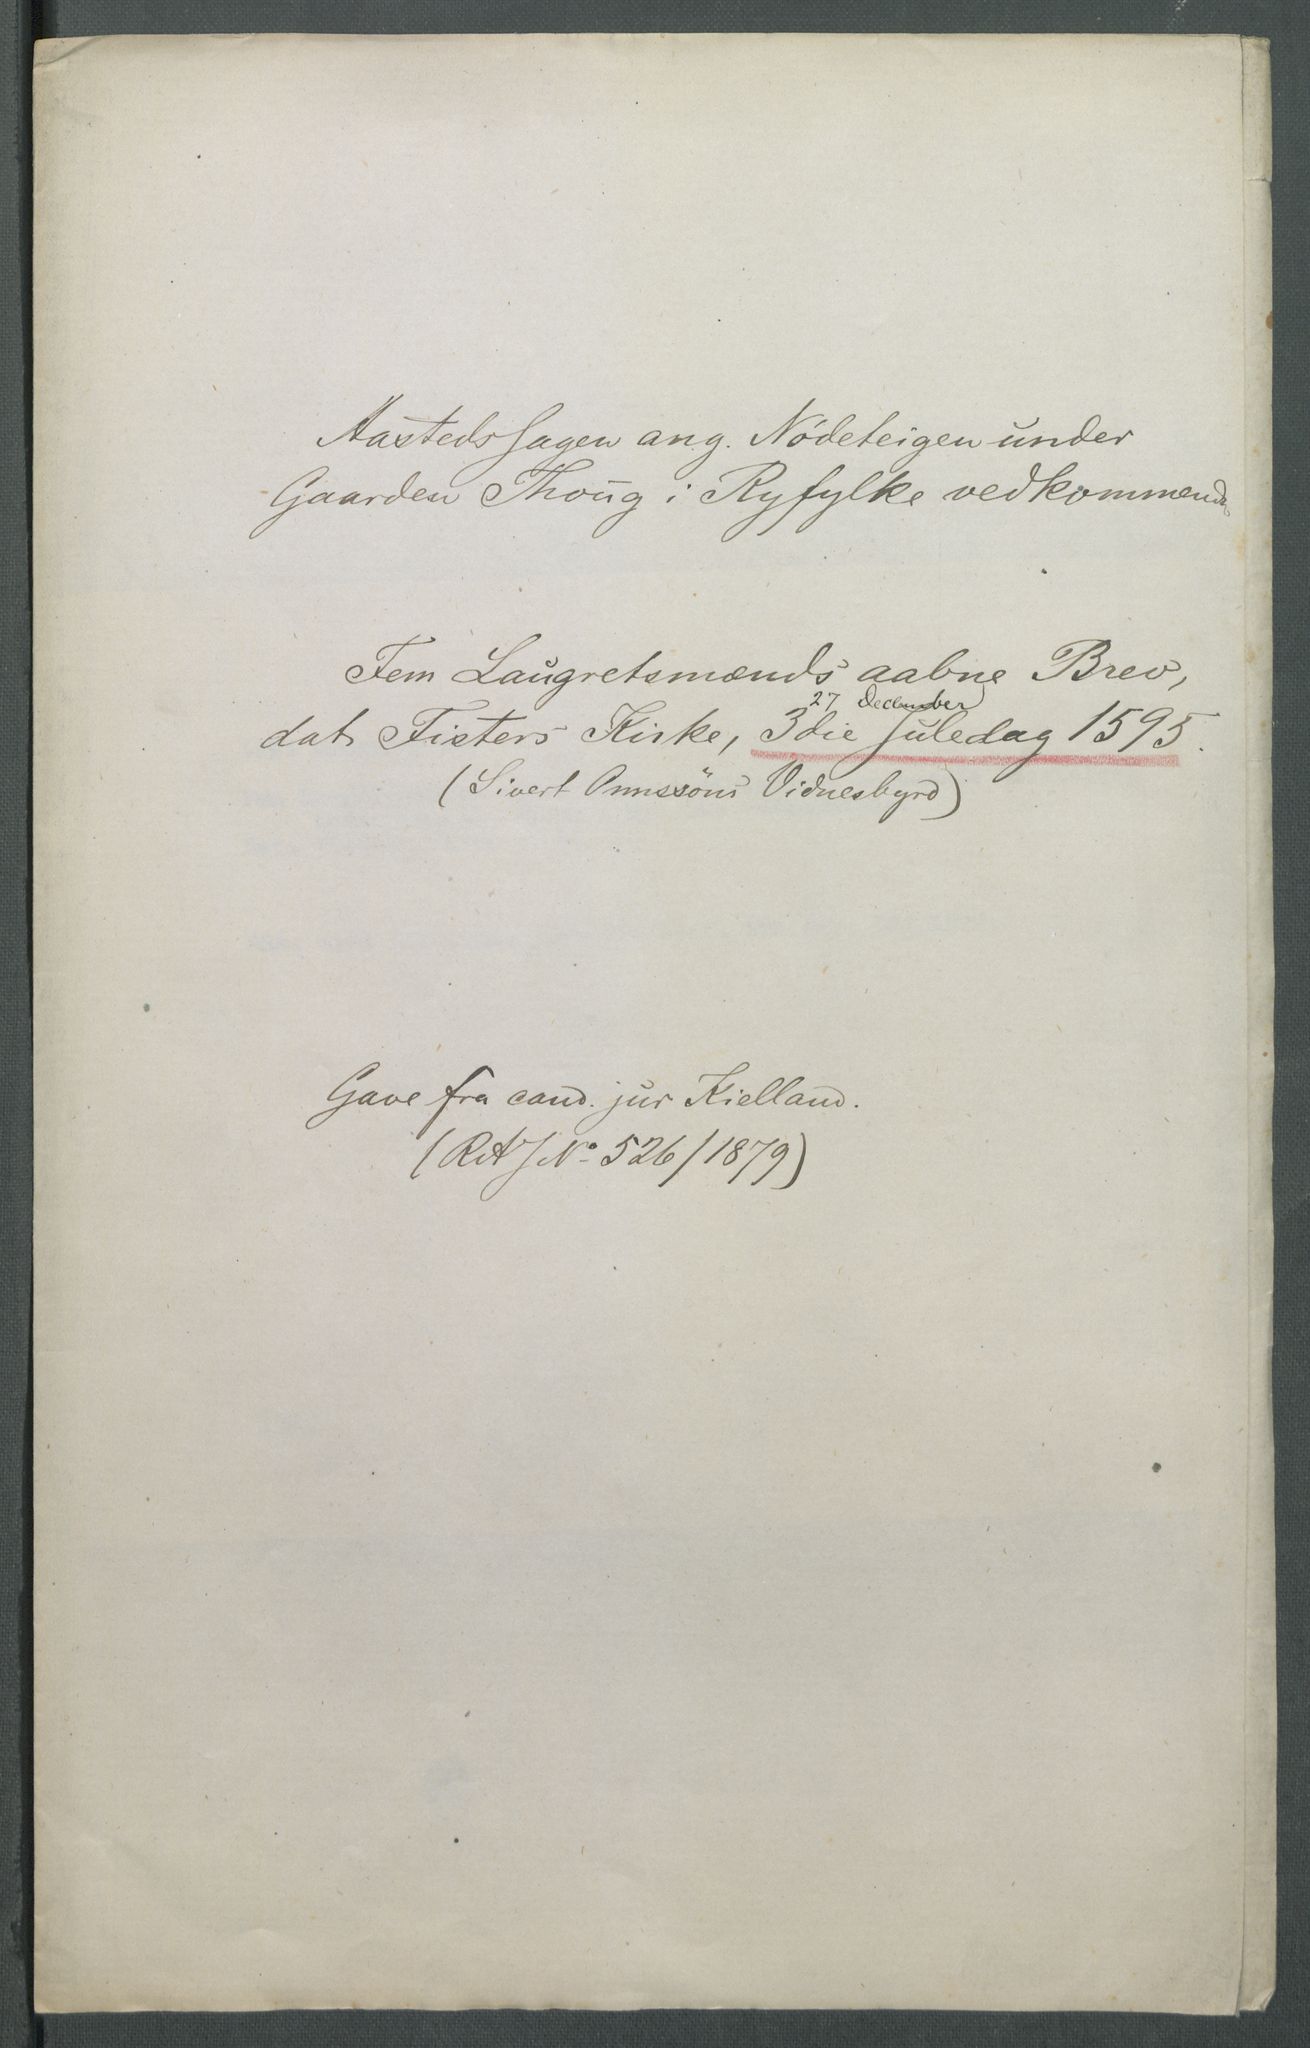 Aastedssagen ang. Nödeteigen under
Gaarden Thoug i Ryfylke vedkommende
Fem Laugretsmænds aabne Brev,
27 december
dat. Fisters Kirke, 3die Juledag 1595.
(Sivert Onnssöns Vidnesbyrd)
Gave fra cand. jur Kielland.
(RA J No 526/1879)